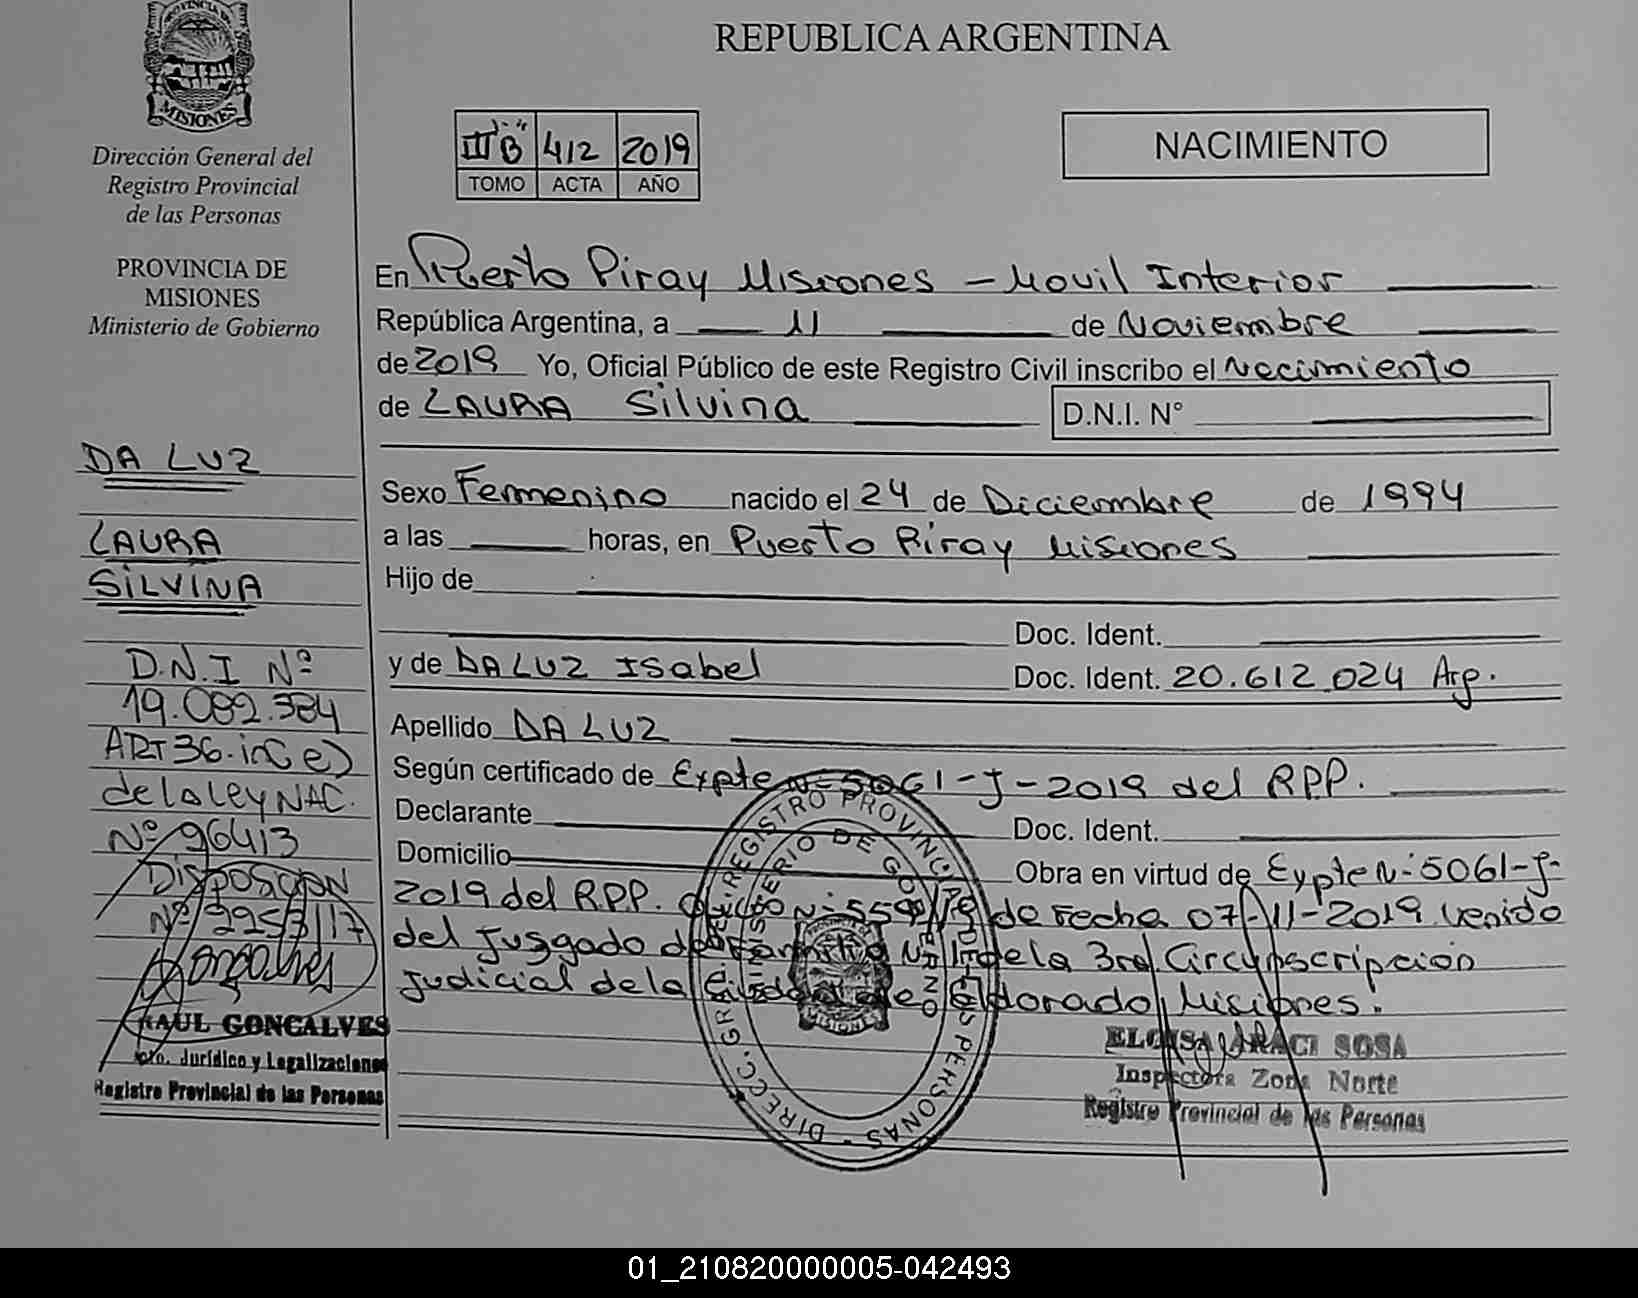 PROVINCIA DE
MISIONES
Dirección General del
Registro Provincial
de las Personas
PROVINCIA DE
MISIONES
Ministerio de Gobierno
DA LUZ
LAURA
SILVINA
D.N.I Nº
19.082.384
ART 36. inc e)
de la ley NAC.
Nº 96413
Disposicion
Nº 2253/17
RAUL GONCALVES
Dto. Jurídico y Legalizaciones
Registro Provincial de las Personas
REPUBLICA ARGENTINA
III "B" 412 2019
TOMO ACTA AÑO
NACIMIENTO
En Puerto Piray Misiones - Movil Interior
República Argentina, a 11 de Noviembre
de 2019 Yo, Oficial Público de este Registro Civil inscribo el Nacimiento
de LAURA Silvina D.N.I. N°
Sexo Femenino nacido el 24 de Diciembre de 1994
a las horas, en Puerto Piray Misiones
Hijo de
Doc. Ident.
y de DA LUZ Isabel Doc. Ident. 20.612.024 Arg.
Apellido DA LUZ
Según certificado de Expte Nº 5061-J-2019 del R.P.P.
Declarante Doc. Ident.
Domicilio Obra en virtud de Expte Nº 5061-J-
2019 del R.P.P. de fecha 07-11-2019 venido
del Juzgado de Familia Nº 1 de la 3ra Circunscripcion
Judicial de la Ciudad de Eldorado, Misiones.
DIRECC. GRAL. DEL REGISTRO PROVINCIAL DE LAS PERSONAS
MINISTERIO DE GOBIERNO
MISIONES
ELOISA ARACI SOSA
Inspectora Zona Norte
Registro Provincial de las Personas
01_210820000005-042493